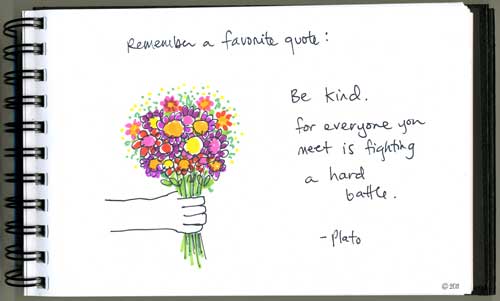 Remember a favorite quote:
Be kind.
for everyone you
meet is fighting
a hard
battle.
-Plato
©2011